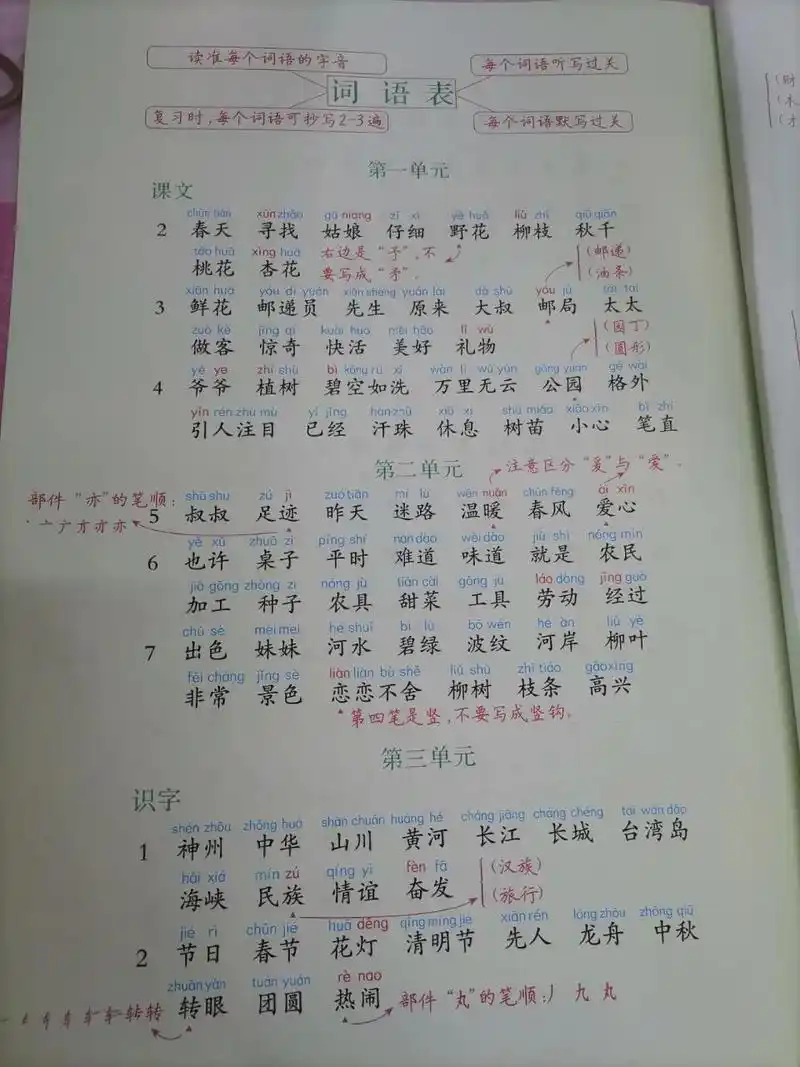 读准每个词语的字音
每个词语听写过关
词 语 表
复习时,每个词语可抄写2-3遍
每个词语默写过关
第一单元
课文
chūn tiān xún zhǎo gū niang zǐ xì yě huā liǔ zhī qiū qiān
2 春天 寻找 姑娘 仔细 野花 柳枝 秋千
táo huā xìng huā 右边是“予”,不 (邮递)
桃花 杏花 要写成“矛”。 (油条)
xiān huā yóu dì yuán xiān sheng yuán lái dà shū yóu jú tài tai
3 鲜花 邮递员 先生 原来 大叔 邮局 太太
zuò kè jīng qí kuài huo měi hǎo lǐ wù (园丁)
做客 惊奇 快活 美好 礼物 (圆形)
yé ye zhí shù bì kōng rú xǐ wàn lǐ wú yún gōng yuán gé wài
4 爷爷 植树 碧空如洗 万里无云 公园 格外
yǐn rén zhù mù yǐ jīng hàn zhū xiū xi shù miáo xiǎo xīn bǐ zhí
引人注目 已经 汗珠 休息 树苗 小心 笔直
第二单元 注意区分“爰”与“爱”。
部件“亦”的笔顺:
shū shu zú jì zuó tiān mí lù wēn nuǎn chūn fēng ài xīn
5 叔叔 足迹 昨天 迷路 温暖 春风 爱心
yě xǔ zhuō zi píng shí nán dào wèi dào jiù shì nóng mín
6 也许 桌子 平时 难道 味道 就是 农民
jiā gōng zhǒng zi nóng jù tián cài gōng jù láo dòng jīng guò
加工 种子 农具 甜菜 工具 劳动 经过
chū sè mèi mei hé shuǐ bì lǜ bō wén hé àn liǔ yè
7 出色 妹妹 河水 碧绿 波纹 河岸 柳叶
fēi cháng jǐng sè liàn liàn bù shě liǔ shù zhī tiáo gāo xìng
非常 景色 恋恋不舍 柳树 枝条 高兴
第四笔是竖,不要写成竖钩。
第三单元
识字
shén zhōu zhōng huá shān chuān huáng hé cháng jiāng cháng chéng tái wān dǎo
1 神州 中华 山川 黄河 长江 长城 台湾岛
hǎi xiá mín zú qíng yì fèn fā (汉族)
海峡 民族 情谊 奋发 (旅行)
jié rì chūn jié huā dēng qīng míng jié xiān rén lóng zhōu zhōng qiū
2 节日 春节 花灯 清明节 先人 龙舟 中秋
zhuǎn yǎn tuán yuán rè nao
转眼 团圆 热闹 部件“丸”的笔顺:丿 九 丸